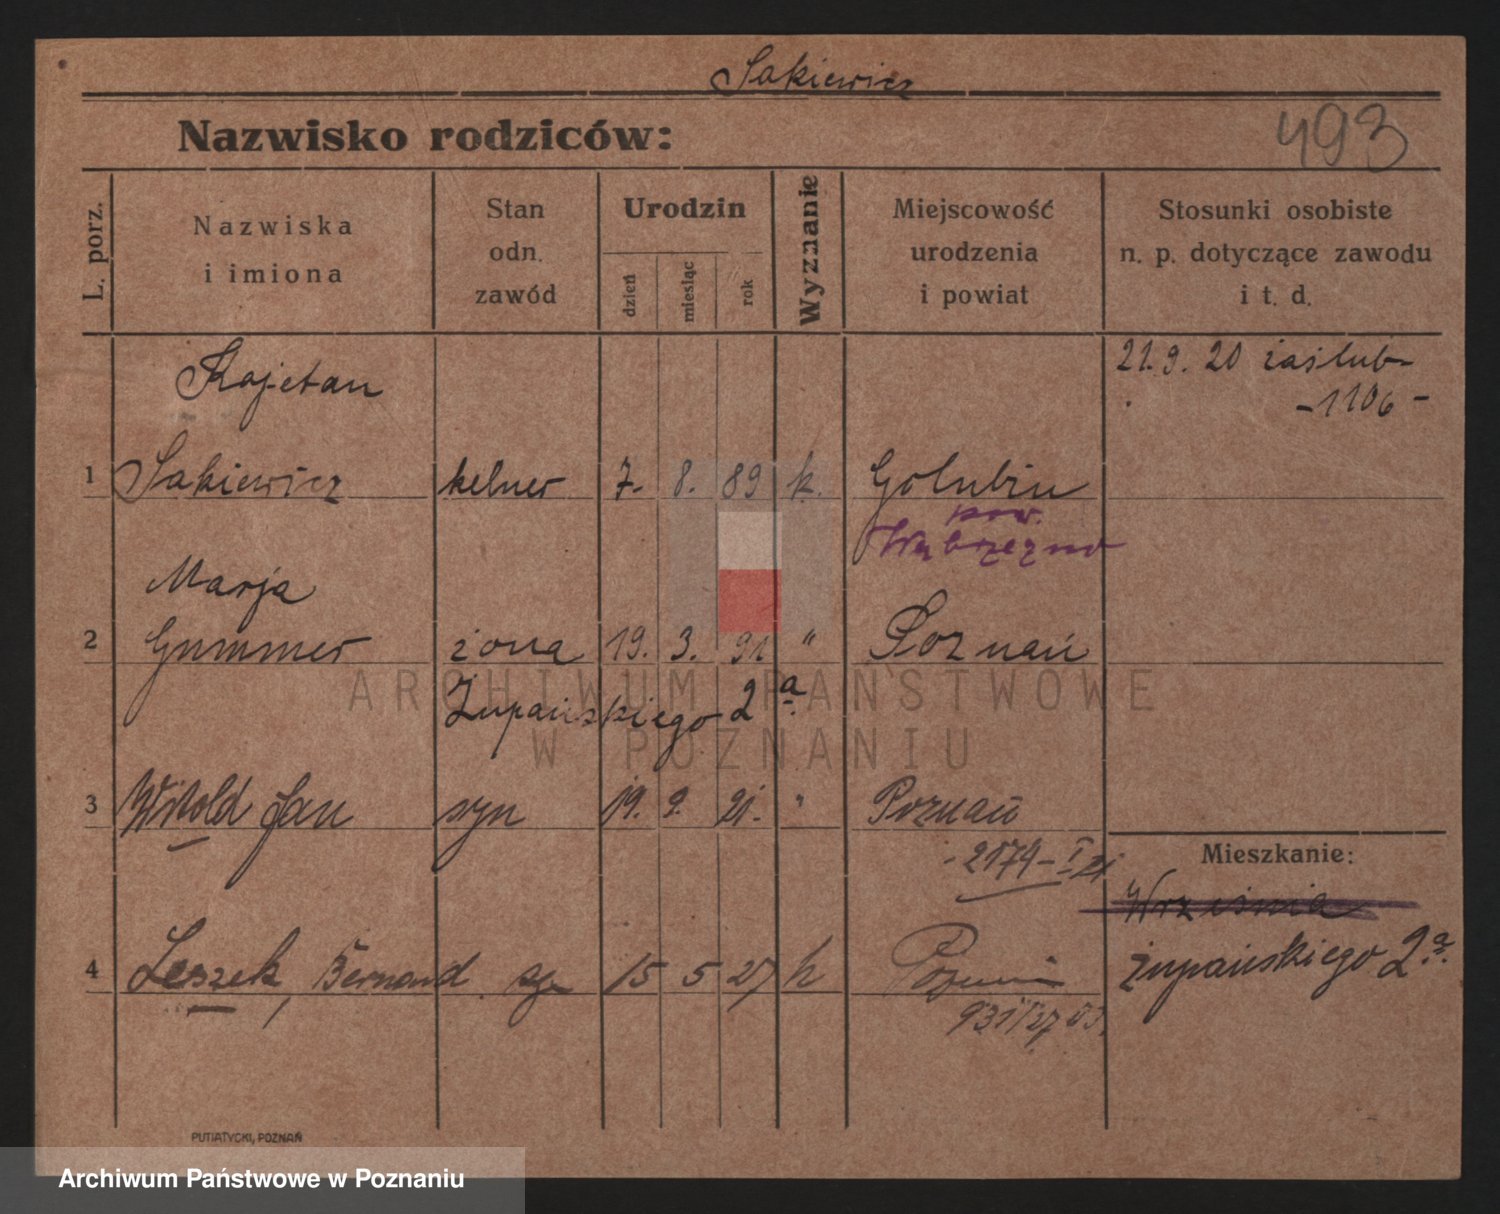 Sakiewicz
Nazwisko rodziców:
493
L. porz.
Nazwiska
i imiona
Stan
odn.
zawód
Urodzin
dzień
miesiąc
rok
Wyznanie
Miejscowość
urodzenia
i powiat
Stosunki osobiste
n. p. dotyczące zawodu
i t. d.
Kajetan
21.9.20 zaślub-
-1106-
1 Sakiewicz kelner 7. 8. 89 k. Golubiu
pow.
Wąbrzezno
Marja
2 Gummer żona 19. 3. 91 " Poznań
Żupańskiego 2a
3 Witold Jan syn 19. 2. 21. " Poznań
-2174-I 21
Mieszkanie:
Września
4 Leszek, Bernard syn 15 5 27 k Poznań
Żupańskiego 2a.
931/27
PUTIATYCKI, POZNAŃ
ARCHIWUM PAŃSTWOWE
W POZNANIU
Archiwum Państwowe w Poznaniu